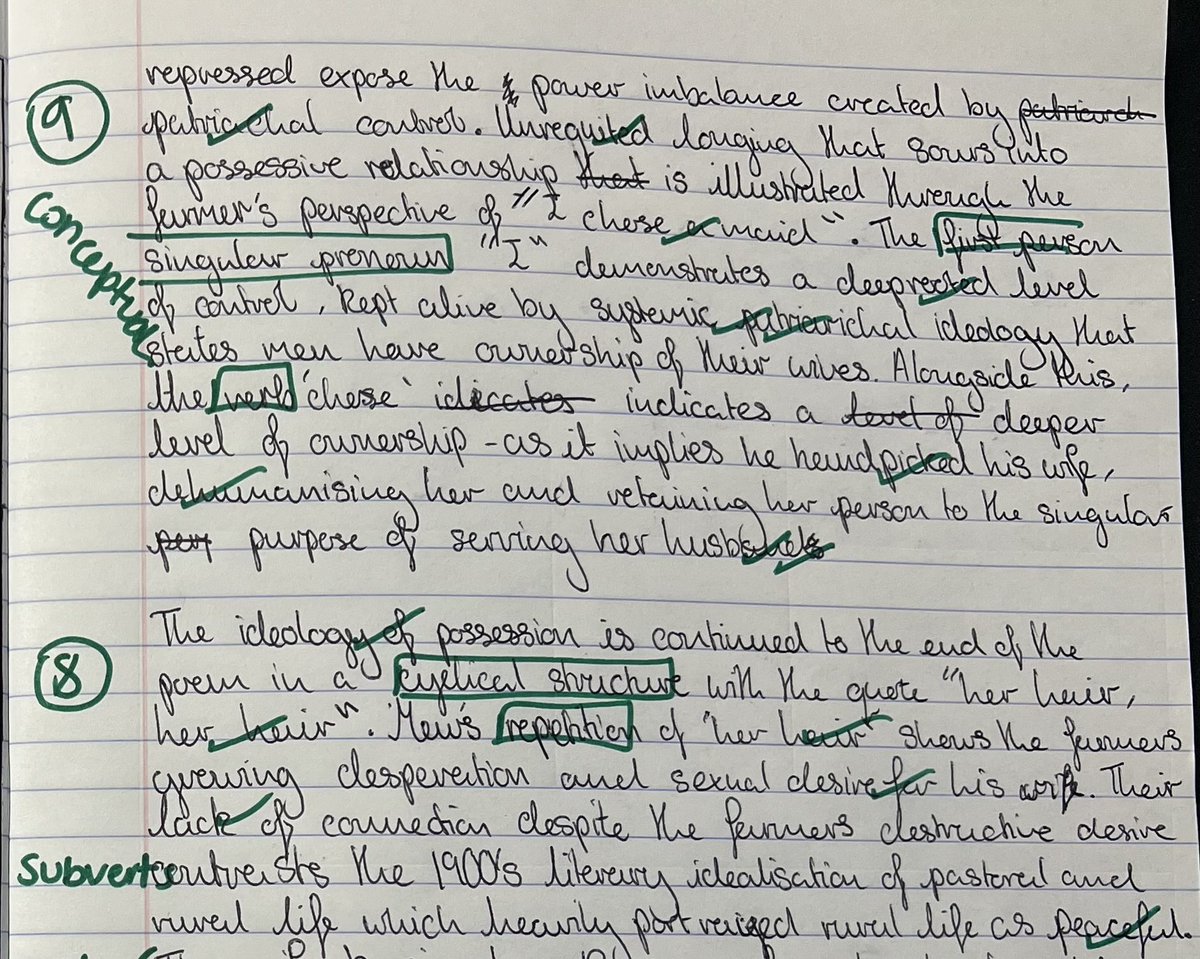 9 repressed expose the power imbalance created by patriarch
patriachal control. Unrequited longing that sours into
a possessive relationship that is illustrated through the
Conceptual farmer's perspective of "I chose a maid". The first person
singular pronoun "I" demonstrates a deeprooted level
of control, kept alive by systemic patriarichal ideology that
states men have ownership of their wives. Alongside this,
the verb 'chose' idicates indicates a level of deeper
level of ownership - as it implies he handpicked his wife,
dehumanising her and retaining her person to the singular
purpose of serving her husband
The ideology of possession is continued to the end of the
8 poem in a cyclical structure with the quote "her hair,
her hair". Mew's repetition of "her hair" shows the farmers
growing desperation and sexual desire for his wife. Their
lack of connection despite the farmers destructive desire
Subverts contrasts the 1900's literary idealisation of pastoral and
rural life which heavily portraiged rural life as peaceful.